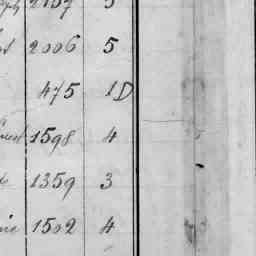 2157 5
2006 5
475 1D
1598 4
1359 3
1502 4